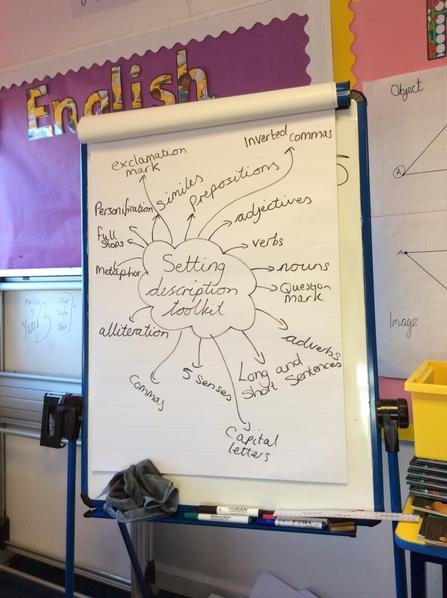 English
Object
exclamation
mark
Inverted commas
similes
prepositions
Personification
adjectives
full
stops
verbs
Metaphor
Setting
description
toolkit
nouns
Question
mark
alliteration
adverbs
Commas
5 senses
Long and
short sentences
Capital
letters
A
A
Image